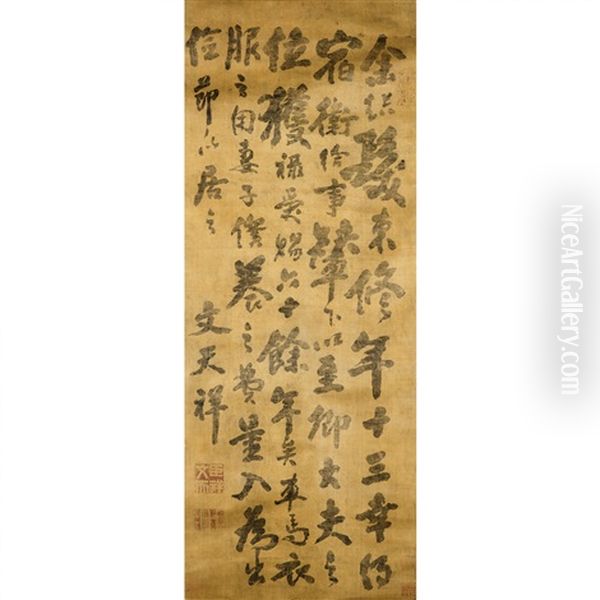 余結髮束修年十三幸得
宿衛給事輦下以至卿大夫之
位獲祿受賜六十餘年矣車馬衣
服之用妻子僕養之費量入為出
儉節以居之
文天祥
NiceArtGallery.com©